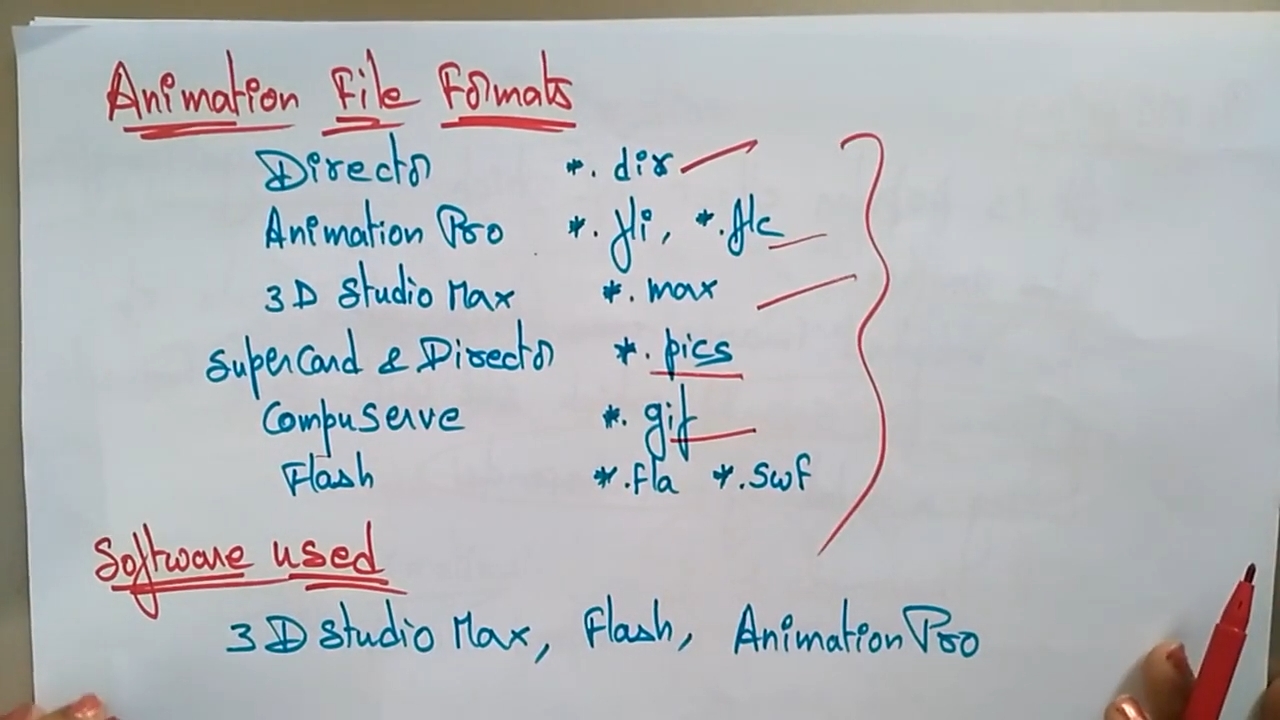 Animation File Formats
Director *. dir
Animation Pro *. fli, *. flc
3D Studio Max *. max
SuperCard & Director *. pics
CompuServe *. gif
Flash *.fla *.swf
Software used
3D Studio Max, Flash, Animation Pro